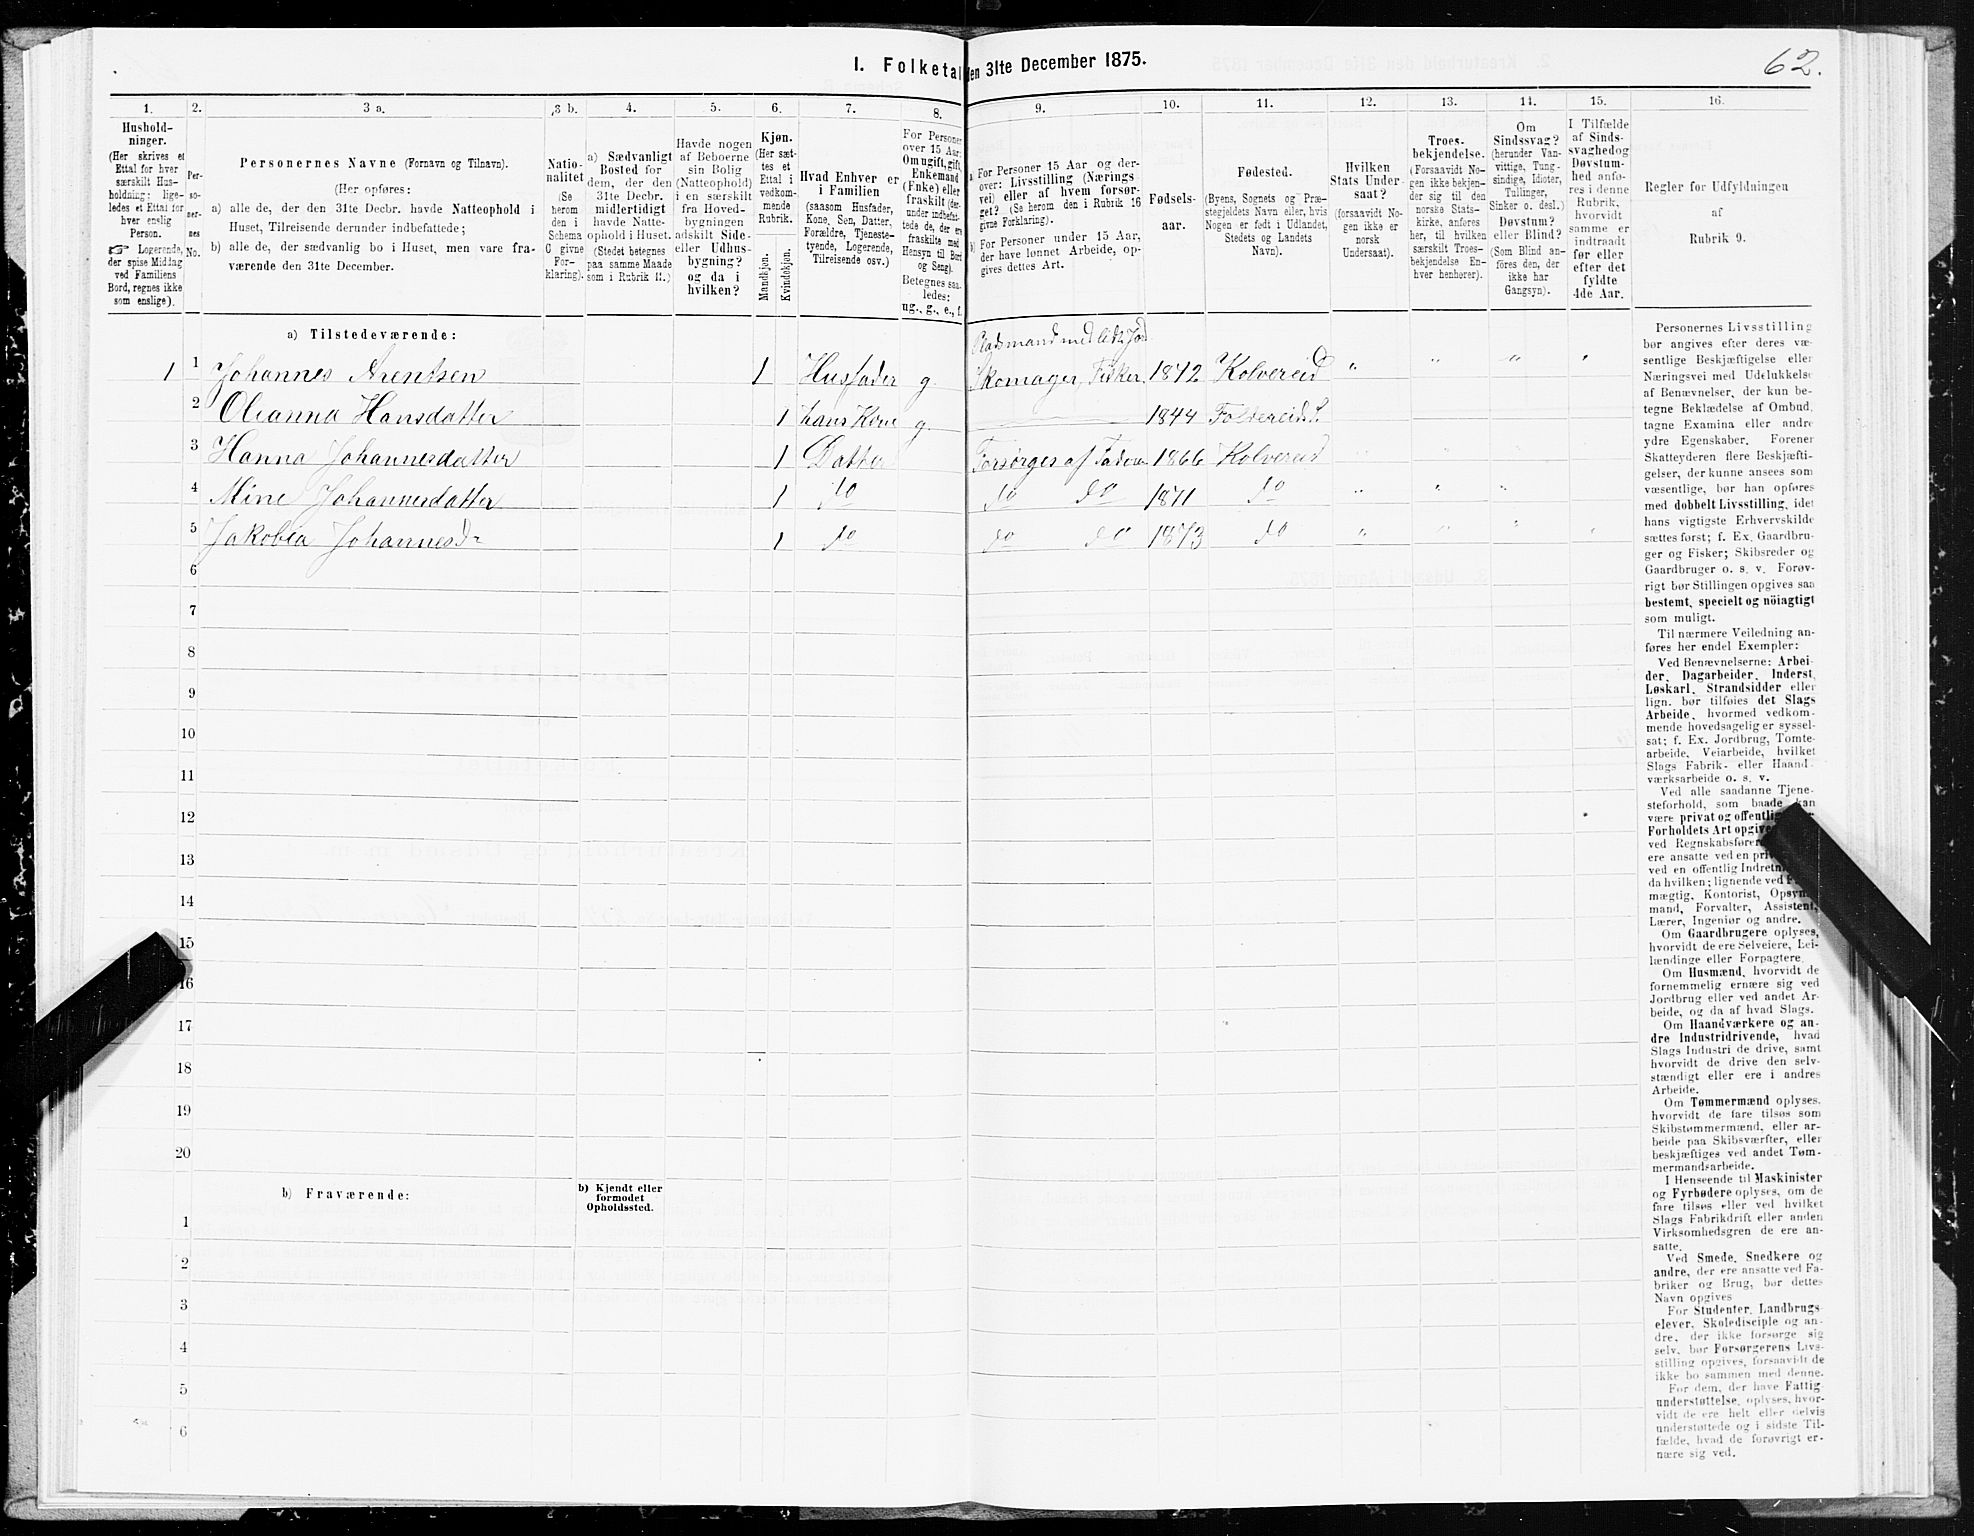 I. Folketal den 31te December 1875.
62.
1.
2.
3 a.
3 b.
4.
5.
6.
7.
8.
9.
10.
11.
12.
13.
14.
15.
16.
Hushold-
ninger.
(Her skrives et
Ettal for hver
særskilt Hus-
holdning; lige-
ledes et Ettal for
hver enslig
Person.
☞ Logerende,
der spise Middag
ved Familiens
Bord, regnes ikke
som enslige).
Per-
so-
ner-
nes
No.
Personernes Navne (Fornavn og Tilnavn).
(Her opføres:
a) alle de, der den 31te Decbr. havde Natteophold i
Huset, Tilreisende derunder indbefattede;
b) alle de, der sædvanlig bo i Huset, men vare fra-
værende den 31te December.
Natio-
nalitet
(Se
herom
den i
Schema
6 givne
For-
klaring).
a) Sædvanligt
Bosted for
dem, der den
31te Decbr.
midlertidigt
havde Natte-
ophold i Huset.
(Stedet betegnes
paa samme Maade
som i Rubrik 11.)
Havde nogen
af Beboerne
sin Bolig
(Natteophold)
i en særskilt
fra Hoved-
bygningen
adskilt Side-
eller Udhus-
bygning?
og da i
hvilken?
Kjøn.
(Her sæt-
tes et
Ettal i
vedkom-
mende
Rubrik.
Mandkjøn.
Kvindekjøn.
Hvad Enhver er
i Familien
(saasom Husfader,
Kone, Søn, Datter,
Forældre, Tjeneste-
tyende, Logerende,
Tilreisende osv.)
For Personer
over 15 Aar:
Om ugift, gift,
Enkemand
(Enke) eller
fraskilt (der-
under indbefat-
tede de, der ere
fraskilte med
Hensyn til Bord
og Seng).
Betegnes saa-
ledes:
ug., g., e., f.
a. For Personer 15 Aar og der-
over: Livsstilling (Nærings-
vei) eller af hvem forsør-
get? (Se herom den i Rubrik 16
givne Forklaring).
b) For Personer under 15 Aar,
der have lønnet Arbeide, op-
gives dettes Art.
Fødsels-
aar.
Fødested.
(Byens, Sognets og Præ-
stegjeldets Navn eller, hvis
Nogen er født i Udlandet,
Stedets og Landets
Navn).
Hvilken
Stats Under-
saat?
(forsaavidt No-
gen ikke er
norsk
Undersaat).
Troes-
bekjendelse.
(Forsaavidt No-
gen ikke bekjen-
der sig til den
norske Stats-
kirke, anføres
her, til hvilken
særskilt Troes-
bekjendelse En-
hver henhører).
Om
Sindssvag?
(herunder Van-
vittige, Tung-
sindige, Idioter,
Tullinger,
Sinker o. desl.)
Døvstum?
eller Blind?
(Som Blind an-
føres den, der
ikke har
Gangsyn).
I Tilfælde
af Sinds-
svaghed og
Døvstum-
hed anfø-
res i denne
Rubrik,
hvorvidt
samme er
indtraadt
før eller
efter det
fyldte
4de Aar.
Regler for Udfyldningen
af
Rubrik 9.
a) Tilstedeværende:
1 1 Johannes Arentsen 1 Husfader g. Pladsmand med lidt Jord Skomager, Fisker 1842 Kolvereid " " " "
2 Oleanna Hansdatter 1 hans Kone g 1844 Foldereid S.
3 Hanna Johannesdatter 1 Datter Forsørges af Faderen 1866 Kolvereid
4 Mine Johannesdatter 1 do do do 1871 do " " "
5 Jakobia Johannesdr 1 do do do 1873 do " " " "
6
7
8
9
10
11
12
13
14
15
16
17
18
19
20
b) Fraværende:
b) Kjendt eller
formodet
Opholdssted.
1
2
3
4
5
6
Personernes Livsstilling
bør angives efter deres væ-
sentlige Beskjæftigelse eller
Næringsvei med Udelukkelse
af Benævnelser, der kun be-
tegne Beklædelse af Ombud,
tagne Examina eller andre
ydre Egenskaber. Forener
Skatteyderen flere Beskjæfti-
gelser, der kunne ansees som
væsentlige, bør han opføres
med dobbelt Livsstilling, idet
hans vigtigste Erhvervskilde
sættes først; f. Ex. Gaardbru-
ger og Fisker; Skibsreder og
Gaardbruger o. s. v. Forøv-
rigt bør Stillingen opgives saa
bestemt, specielt og nöiagtigt
som muligt.
Til nærmere Veiledning an-
føres her endel Exempler:
Ved Benævnelserne: Arbei-
der, Dagarbeider, Inderst,
Løskarl, Strandsidder eller
lign. bør tilføies det Slags
Arbeide, hvormed vedkom-
mende hovedsagelig er syssel-
sat; f. Ex. Jordbrug, Tomte-
arbeide, Veiarbeide, hvilket
Slags Fabrik- eller Haand-
værksarbeide o. s. v.
Ved alle saadanne Tjene-
steforhold, som baade kan
være privat og offentlig
Forholdets Art opgives
ved Regnskabsfører
ere ansatte ved en
ved en offentlig Indretn
da hvilken; lignende ved
mægtig, Kontorist, Opsyns-
mand, Forvalter, Assistent,
Lærer, Ingeniør og andre.
Om Gaardbrugere oplyses,
hvorvidt de ere Selveiere, Lei-
lændinge eller Forpagtere.
Om Husmænd, hvorvidt de
fornemmelig ernære sig ved
Jordbrug eller ved andet Ar-
beide, og da af hvad Slags.
Om Haandværkere og an-
dre Industridrivende, hvad
Slags Industri de drive, samt
hvorvidt de drive den selv-
stændigt eller ere i andres
Arbeide.
Om Tømmermænd oplyses,
hvorvidt de fare tilsøs som
Skibstømmermænd, eller ar-
beide paa Skibsværfter, eller
beskjæftiges ved andet Tøm-
mermandsarbeide.
I Henseende til Maskinister
og Fyrbødere oplyses, om de
fare tilsøs eller ved hvilket
Slags Fabrikdrift eller anden
Virksomhedsgren de ere an-
satte.
Ved Smede, Snedkere og
andre, der ere ansatte ved Fa-
briker og Brug, bør dettes
Navn opgives
For Studenter, Landbrugs-
elever, Skoledisciple og an-
dre, der ikke forsørge sig
selv, bør Forsørgerens Livs-
stilling opgives, forsaavidt de
ikke bo sammen med denne.
For dem, der have Fattig-
understøttelse, oplyses, hvor-
vidt de ere helt eller delvis
understøttede og i sidste Til-
fælde, hvad de forøvrigt er-
nære sig ved.